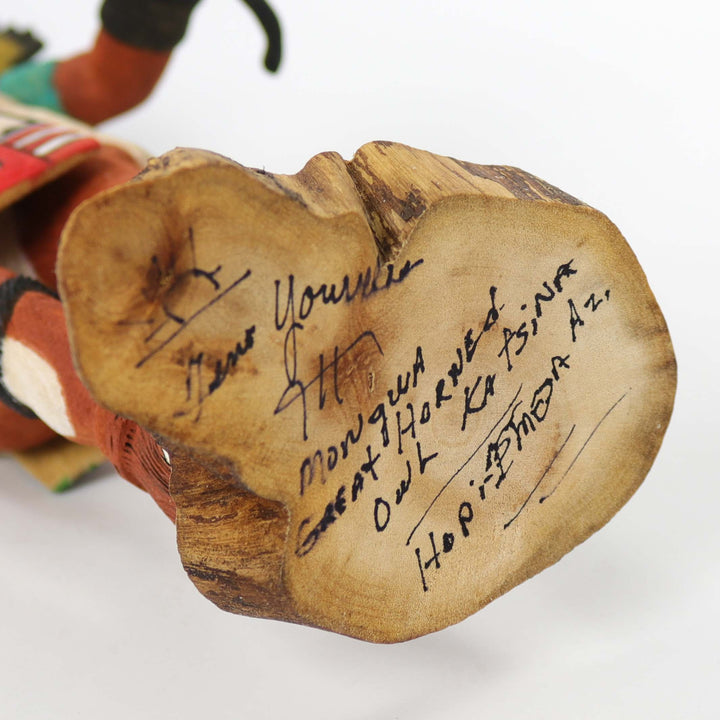 Tino Youvella
Mongwa
Great Horned
Owl Katsina
Hopi-
Az.